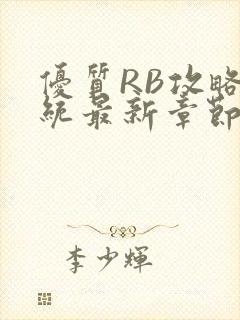 優質RB攻略
統最新章節
李少輝